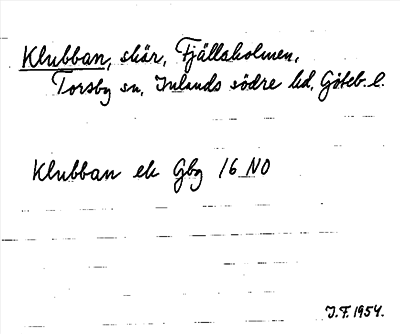 Klubban, skär, Fjällsholmen,
Torsby sn, Inlands södre hd, Göteb. l.
Klubban ek Gbg 16 NO
J.F. 1954.